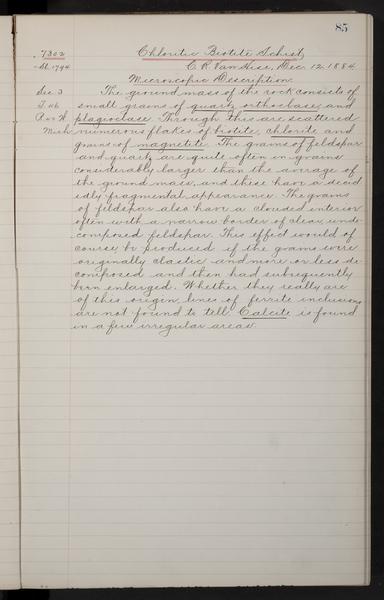 85
7302 Chloritic Biotite Schist,
Sl. 1794 C. R. Van Hise, Dec. 12, 1884
Microscopic Description.
Sec. 3 The ground mass of the rock consists of
T. 46 small grains of quartz, orthoclase, and
plagioclase. Through this are scattered
Mich. numerous flakes of biotite, chlorite and
grains of magnetite. The grains of feldspar
and quartz are quite often in grains
considerably larger than the average of
the ground mass, and these have a decid
edly fragmental appearance. The grains
of feldspar also have a clouded interior
often with a narrow border of clear, unde-
composed feldspar. This effect would of
course be produced if the grains were
originally clastic and more or less de
composed and then had subsequently
been enlarged. Whether they really are
of this origin, lines of ferrite inclusions
are not found to tell. Calcite is found
in a few irregular areas.